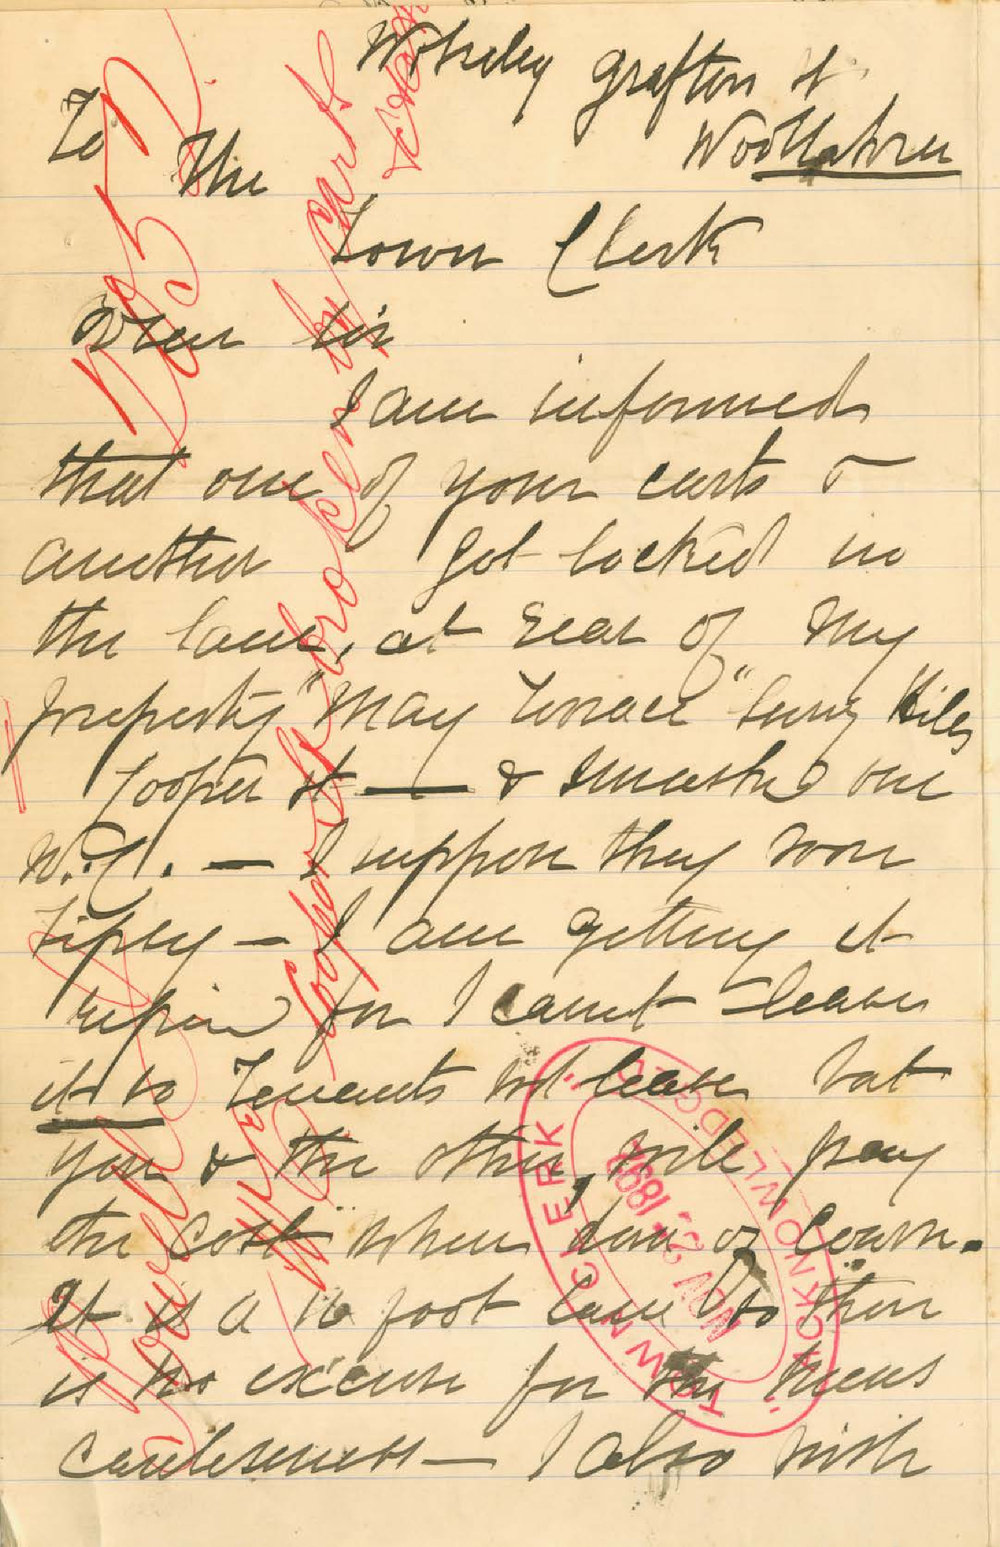 Wolseley Grafton St
Woollahra
To
The
Town Clerk
Dear Sir
I am informed
that one of your carts &
another got locked in
the lane, at rear of my
property "May Terrace" Surry Hills
Cooper St — & smashed one
W.C. — I suppose they were
Tipsy — I am getting it
repaired for I cant leave
it so Tenants will leave but
you & the other, will pay
the cost when done of course.
It is a 10 foot lane so there
is no excuse for the mens
carelessness — I also wish
Cooper St broken by carts
TOWN CLERK
NOV 22 1892
"ACKNOWLEDGED"